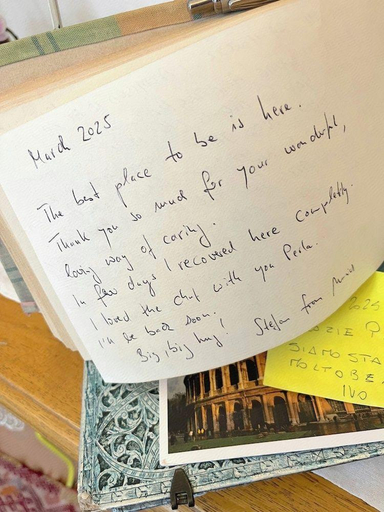 March 2025
The best place to be is here.
Thank you so much for your wonderful,
loving way of caring.
In few days I recovered here completely.
I loved the chat with you Perla.
I'll be back soon.
Big big hug! Stefan from
2025
ZIE
SIAMO STA
MOLTO BE